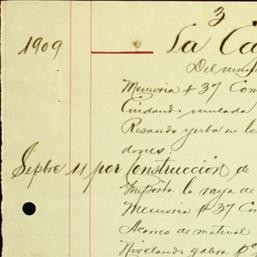 3
1909 La Ca
Del mun
Memoria # 37 Com
Cuidando mulada
Rosando yerba en lo
dones.
Septbre 11 por Construcción de
Importa la raya de
Memoria # 37 Com
Acarreo de material
Nivelando